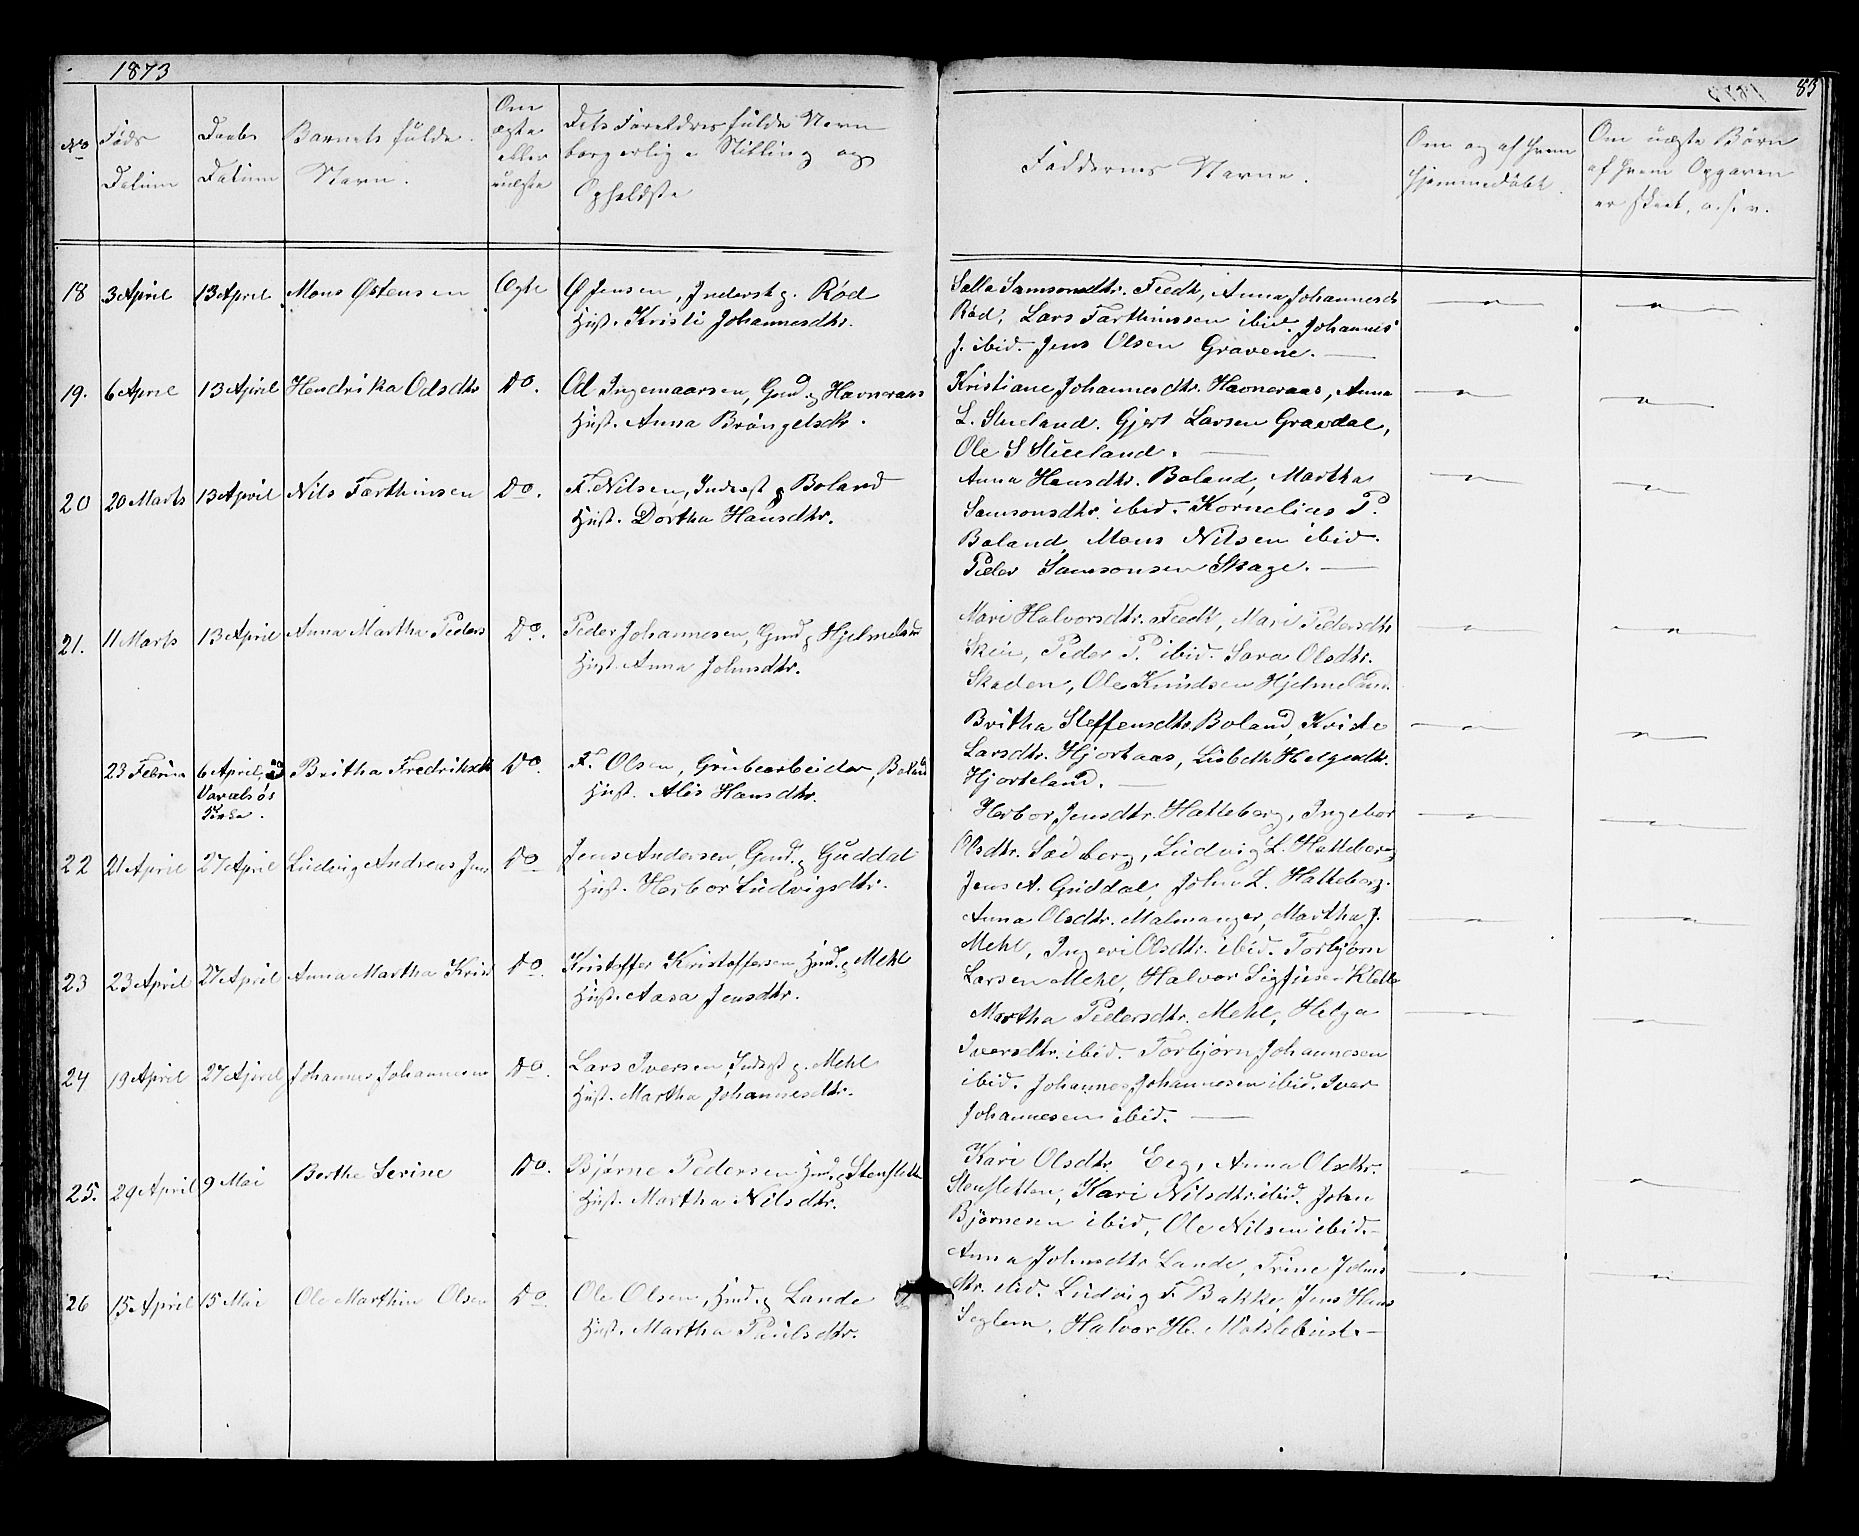 1873
85
No
Føds Datum
Daabs Datum
Barnets fulde Navn.
Om ægte eller uægte
Dets Foreldres fulde Navn borgerlige Stilling og Opholdste
Faddernes Navne.
Om og af hvem hjemmedöbt.
Om uægte Børn af hvem Opgaven er skeet, o.s.v.
18 3 April 13 April Mons Østensen Ægte Ø Jensen, Inderst g. Rød
Hust. Kristi Johannesdtr.
Salla Samsonsdtr. Feedt, Anna Johannesdt
Rød, Lars Tarthinssen ibid. Johannes
J. ibid. Jens Olsen Gravene. —
19. 6 April 13 April Hendrika Odsdtr Do. Od Ingemaarsen, Gmd. g Havneraas
Hust. Anna Bröngelsdtr.
Kristiane Johannesdtr. Havneraas, Anna
L. Stueland. Gjert Larsen Gravdal,
Ole S Stueland. —
20 20 Marts 13 April Nils Tarthinsen Do. T. Nilsen, Inderst g Boland
Hust. Dortha Hansdtr.
Anna Hansdtr. Boland, Martha
Samsonsdtr. ibid. Kornelius P.
Boland, Mons Nilsen ibid.
Peder Samsonsen Skage. —
21. 11 Marts 13 April Anna Martha Peders Do. Peder Johannesen, Gmd g Hjelmeland
Hust. Anna Johnsdtr.
Mari Halvorsdtr. Feedt, Mari Pedersdtr
Skeie, Peder P. ibid. Sara Olsdtr.
Skaden, Ole Knudsen Hjelmeland.
23 Februa 6 April, Britha Fredriksdtr Do. F. Olsen, Grubearbeider, Boland
Varalsös Kirke.
Hust. Alis Hansdtr.
Britha Steffensdtr Boland, Kriste
Larsdtr. Hjortaas, Lisbeth Helgesdtr.
Hjorteland. —
22 21 April 27 April Ludvig Andreas Jens Do Jens Andersen, Gmd. g Guddal
Hust. Herbor Ludvigsdtr.
Herbor Jensdtr. Hatteberg, Ingebor
Olsdtr. Sædberg, Ludvig L. Hatteberg
Jens A. Guddal, John L. Hatteberg.
23 23 April 27 April Anna Martha Krist Do Kristoffer Kristoffersen, Hmd. g Mehl
Hust. Aasa Jensdtr.
Anna Olsdtr. Malmanger, Martha J.
Mehl, Ingeri Olsdtr. ibid. Torbjørn
Larsen Mehl, Halvor Sigfusen Klette
24 19 April 27 April Johannes Johannesen Do. Lars Iversen, Inderst g. Mehl
Hust. Martha Johannesdtr.
Martha Pedersdtr. Mehl, Helga
Iversdtr. ibid. Torbjørn Johannesen
ibid. Johannes Johannesen ibid. Ivar
Johannesen ibid. —
25. 29 April 9 Mai Berthe Serine Do. Bjørne Pedersen Hmd. g Stensletten
Hust. Martha Nilsdtr.
Kari Olsdtr. Eeg, Anna Olsdtr.
Stensletten, Kari Nilsdtr. ibid. John
Bjørnesen ibid, Ole Nilsen ibid. —
26 15 April 15 Mai Ole Marthin Olsen Do Ole Olsen, Hmd. g Lande
Hust. Martha Paulsdtr.
Anna Johnsdtr Lande, Trine Johns
dtr. ibid. Ludvig F. Bakke, Jens Hans
Seglem, Halvor H. Möklebust. —